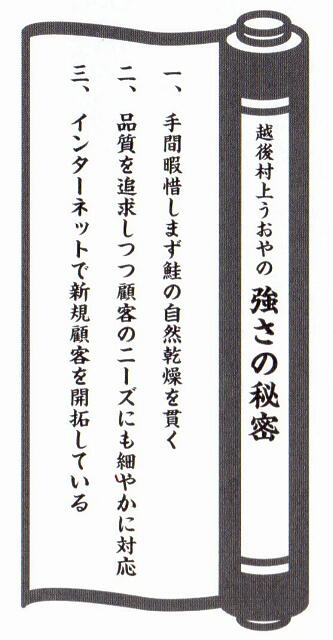 越後村上うおやの 強さの秘密
一、手間暇惜しまず鮭の自然乾燥を貫く
二、品質を追求しつつ顧客のニーズにも細やかに対応
三、インターネットで新規顧客を開拓している